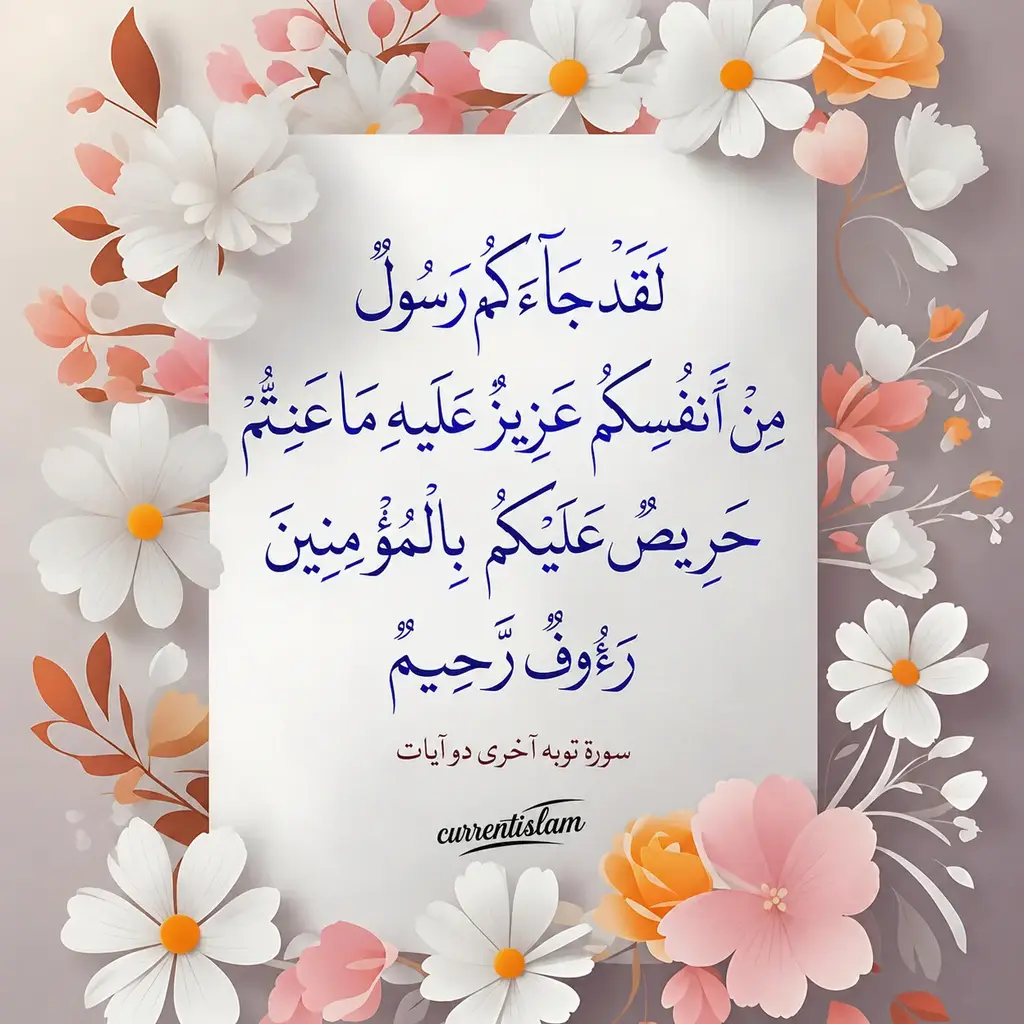 لَقَدْ جَآءَكُمْ رَسُولٌ
مِنْ أَنفُسِكُمْ عَزِيزٌ عَلَيهِ مَا عَنِتُّمْ
حَرِيصٌ عَلَيْكُمْ بِالْمُؤْمِنِينَ
رَءُوفٌ رَّحِيمٌ
سورة توبه آخری دو آیات
currentislam